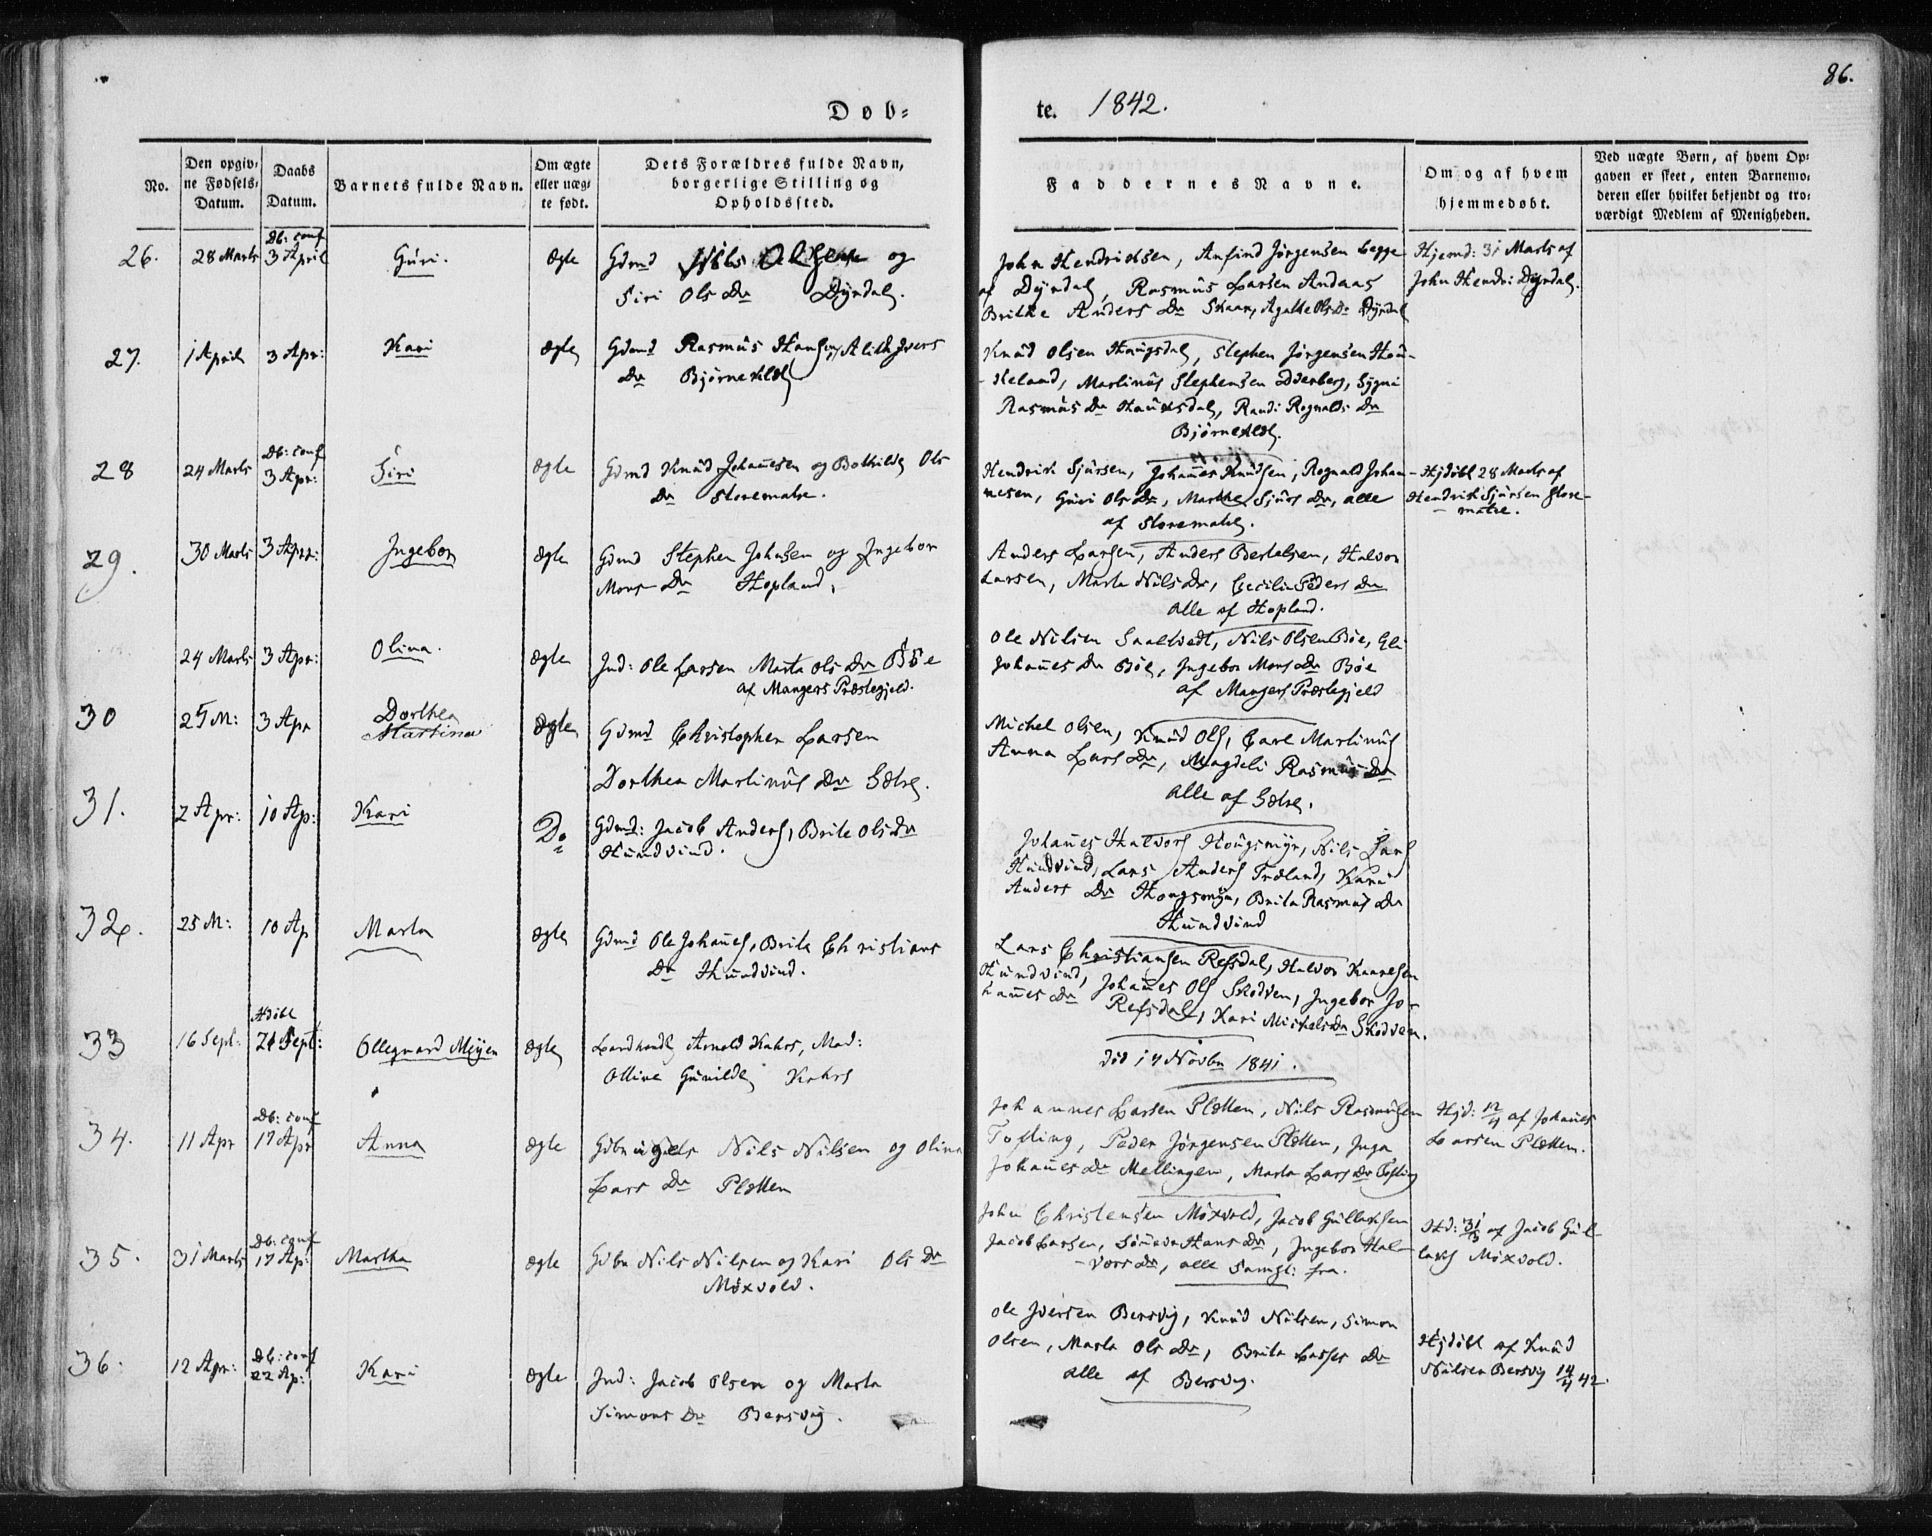 86.
Døb-
te. 1842.
No.
Den opgiv-
ne Fødsels-
Datum.
Daabs
Datum.
Barnets fulde Navn.
Om ægte
eller uæg-
te født.
Dets Forældres fulde Navn,
borgerlige Stilling og
Opholdssted.
Faddernes Navne.
Om og af hvem
hjemmedøbt.
Ved uægte Børn, af hvem Op-
gaven er skeet, enten Barnemo-
deren eller hvilket bekjendt og tro-
værdigt Medlem af Menigheden.
Db: conf
26. 28 Marts 3 April Guri. Ægte Gdmd Nils Olsen og
Siri Ols Dr Dyrdal.
John Hendriksen, Anfind Jørgensen begge
af Dyrdal, Rasmus Larsen Andaas
Brithe Anders Dr Skaar, Agathe Ols Dr Dyrdal
Hjemd: 31 Marts af
John Hendri Dyrdal.
27. 1 April 3 Apr: Kari Ægte Gdmd Rasmus Hansen, Alith Ivers
Dr Bjørneklet
Knud Olsen Haugsdal, Stephen Jørgensen Hou-
keland, Martinus Stephensen Odenberg, Sygni
Rasmus Dr Haugsdal, Randi Rognalds Dr
Bjørneklet.
Db: conf
28 24 Marts 3 Apr: Siri Ægte Gdmd Knud Johannesen og Bothilde Ols
Dr Storematre.
Hendrik Sjursen, Johannes Knudsen, Rognald Johan-
nesen, Guri Ols Dr, Marthe Sjurs Dr, alle
af Storematre.
Hjdøbt 28 Marts af
Hendrik Sjursen Store-
matre.
29. 30 Marts 3 Apr: Ingebor Ægte Gdmd Stephen Johnsen og Ingebor
Mons Dr Hopland.
Anders Larsen, Anders Bertelsen, Halvor
Larsen, Marta Nils Dr, Cecilia Peders Dr
alle af Hopland.
24 Marts 3 Apr: Olina. Ægte Ind: Ole Larsen Marta Ols Dr Bøe
af Mangers Præstegjeld.
Ole Nilsen Saaltvedt, Nils Olsen Bøe, Eli
Johannes Dr Bøe, Ingebor Mons Dr Bøe
af Mangers Præstegjeld
30 25 M: 3 Apr Dorthea
Martina Ægte Gdmd Christopher Larsen
Dorthea Martinus Dr Sætre.
Michel Olsen, Knud Ols, Carl Martinus
Anna Lars Dr, Magdeli Rasmus Dr
alle af Sætre.
31. 2 Apr: 10 Ap: Kari Do Gdmd: Jacob Anders, Brite Ols Dr
Hundvind.
Johannes Halvors Hougsmyr, Nils Lars
Hundvind, Lars Anders Træland, Kari
Anders Dr Hougsmyr, Brita Rasmus Dr
Hundvind
32. 25 M: 10 Ap Marta Ægte Gdmd Ole Johannes, Brita Christians
Dr Hundvind.
Lars Christiansen Refsdal, Halvor Knudsen
Hundvind, Johannes Ols Skodven, Ingebor Jo-
hannes Dr Refsdal, Kari Michels Dr Skodven.
Hdøbt
33 16 Sept: 21 Sept: Ollegaard Meyer Ægte Landhandl Arnold Kahrs, Mad:
Olline Gunilde Kahrs
død 17 Novbr 1841.
Db: conf
34. 11 Apr 17 Apr Anna Ægte Gdbr Nils Nilsen og Olina
Lars Dr Pletten
Johannes Larsen Pletten, Nils Rasmusen
Tofting, Peder Jørgensen Pletten, Inga
Johannes Dr Mellingen, Marta Lars Dr Tofting
Hjd: 12/4 af Johannes
Larsen Pletten.
Db: conf
35. 31 Marts 17 Ap: Martha Ægte Gdbr Nils Nilsen og Kari Ols Dr
Møxvold.
John Christensen Møxvold, Jacob Gullaksen
Jacob Larsen, Hans Dr, Ingebor Hal-
vors Dr, alle Samst: fra.
Hd: 31/3 af Jacob Gul-
laks Møxvold.
Db: conf
36. 12 Apr: 22 Ap: Kari Ægte Ind: Jacob Olsen og Marta
Simons Dr Bersvig.
Ole Iversen Bersvig, Knud Nilsen, Simon
Olsen, Marta Ols Dr, Brita Lasses Dr
alle af Bersvig.
Hjdøbt af Knud
Nilsen Bersvig 14/4 42.